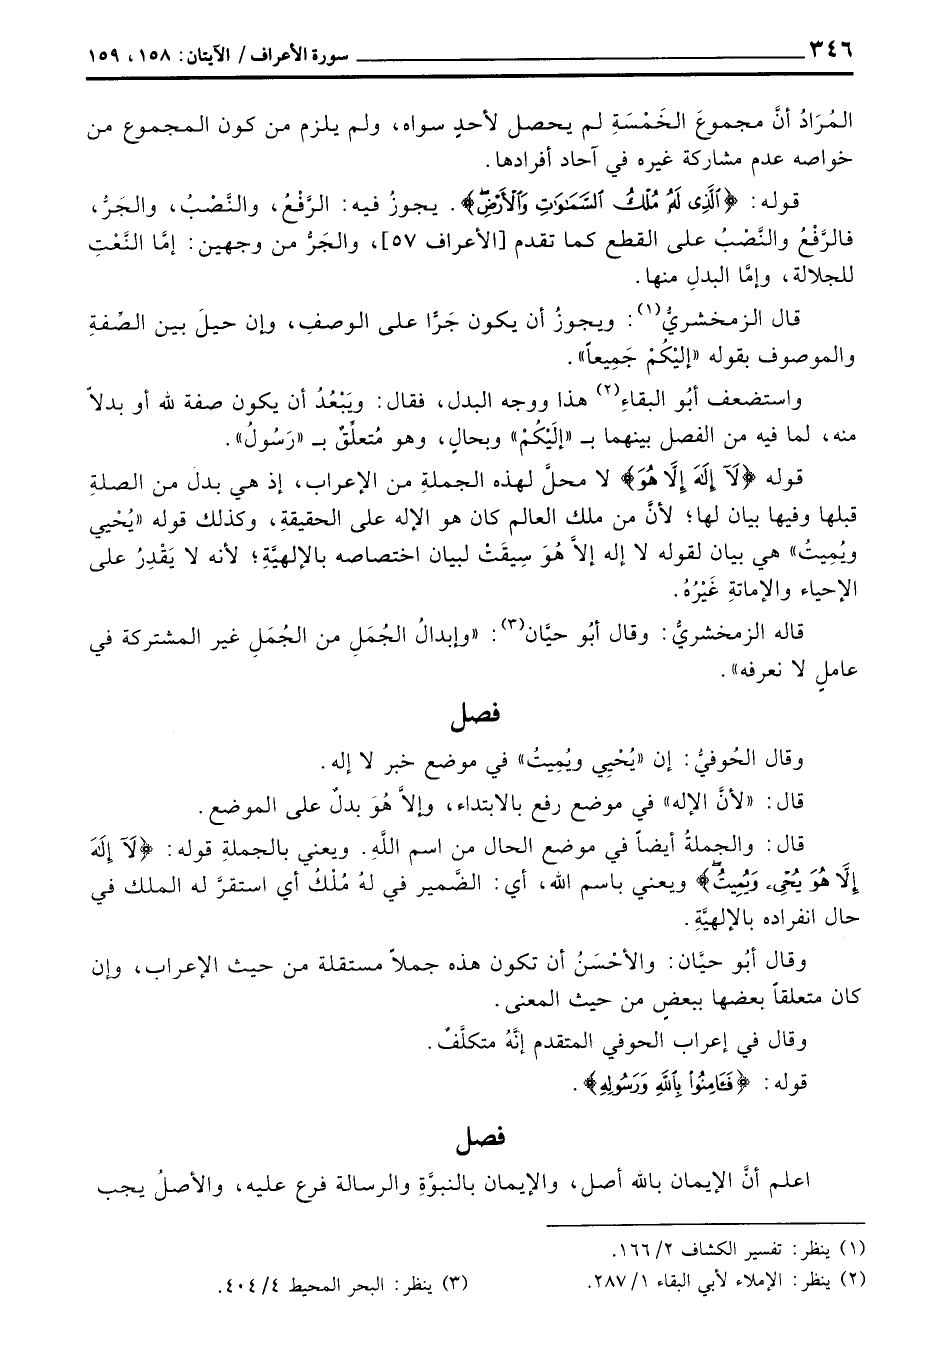 ٣٤٦ ــــــ سورة الأعراف / الآيتان: ١٥٨، ١٥٩
المُرَادُ أنَّ مجموعَ الخَمْسَةِ لم يحصل لأحدٍ سواه، ولم يلزم من كون المجموع من
خواصه عدم مشاركة غيره في آحاد أفرادها.
قوله: ﴿ٱلَّذِى لَهُۥ مُلْكُ ٱلسَّمَـٰوَٰتِ وَٱلْأَرْضِۖ﴾. يجوزُ فيه: الرَّفْعُ، والنَّصْبُ، والجَرُّ،
فالرَّفْعُ والنَّصْبُ على القطع كما تقدم [الأعراف ٥٧]، والجَرُّ من وجهين: إمَّا النَّعْتِ
للجلالة، وإمَّا البدلِ منها.
قال الزمخشريُّ(١): ويجوزُ أن يكون جَرًّا على الوصف، وإن حيلَ بين الصِّفةِ
والموصوف بقوله «إليْكُمْ جَمِيعاً».
واستضعف أبُو البقاءِ(٢) هذا ووجه البدل، فقال: ويَبْعُدُ أن يكون صفة لله أو بدلاً
منه، لما فيه من الفصل بينهما بـ «إلَيْكُمْ» وبحالٍ، وهو مُتعلِّقٌ بـ «رَسُولُ».
قوله ﴿لَآ إِلَهَ إِلَّا هُوَ﴾ لا محلَّ لهذه الجملةِ من الإعراب، إذ هي بدل من الصلةِ
قبلها وفيها بيان لها؛ لأنَّ من ملك العالم كان هو الإله على الحقيقةِ، وكذلك قوله «يُحْيي
ويُمِيتُ» هي بيان لقوله لا إله إلاَّ هُوَ سِيقَتْ لبيان اختصاصه بالإلهيَّةِ؛ لأنه لا يَقْدِرُ على
الإحياء والإماتةِ غَيْرُهُ.
قاله الزمخشريُّ: وقال أبُو حيَّان(٣): «وإبدالُ الجُمَلِ من الجُمَلِ غير المشتركة في
عاملٍ لا نعرفه».
فصل
وقال الحُوفيُّ: إن «يُحْيِي ويُمِيتُ» في موضع خبر لا إله.
قال: «لأنَّ الإله» في موضع رفع بالابتداء، وإلاَّ هُوَ بدلٌ على الموضع.
قال: والجملةُ أيضاً في موضع الحال من اسم اللَّهِ. ويعني بالجملةِ قوله: ﴿لَآ إِلَهَ
إِلَّا هُوَ يُحْىِۦ وَيُمِيتُۖ﴾ ويعني باسم الله، أي: الضَّمير في لهُ مُلْكُ أي استقرَّ له الملك في
حال انفراده بالإلهيَّةِ.
وقال أبُو حيَّان: والأحْسَنُ أن تكون هذه جملاً مستقلة من حيث الإعراب، وإن
كان متعلقاً بعضها ببعضٍ من حيث المعنى.
وقال في إعراب الحوفي المتقدم إنَّهُ متكلَّفٌ.
قوله: ﴿فَـَٔامِنُوا۟ بِٱللَّهِ وَرَسُولِهِ﴾.
فصل
اعلم أنَّ الإيمان بالله أصل، والإيمان بالنبوَّةِ والرسالة فرع عليه، والأصلُ يجب
(١) ينظر: تفسير الكشاف ٢/ ١٦٦.
(٢) ينظر: الإملاء لأبي البقاء ١/ ٢٨٧. (٣) ينظر: البحر المحيط ٤/ ٤٠٤.